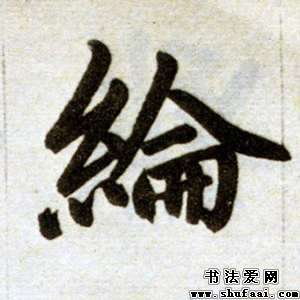 綸
书法爱网
www.shufaai.com